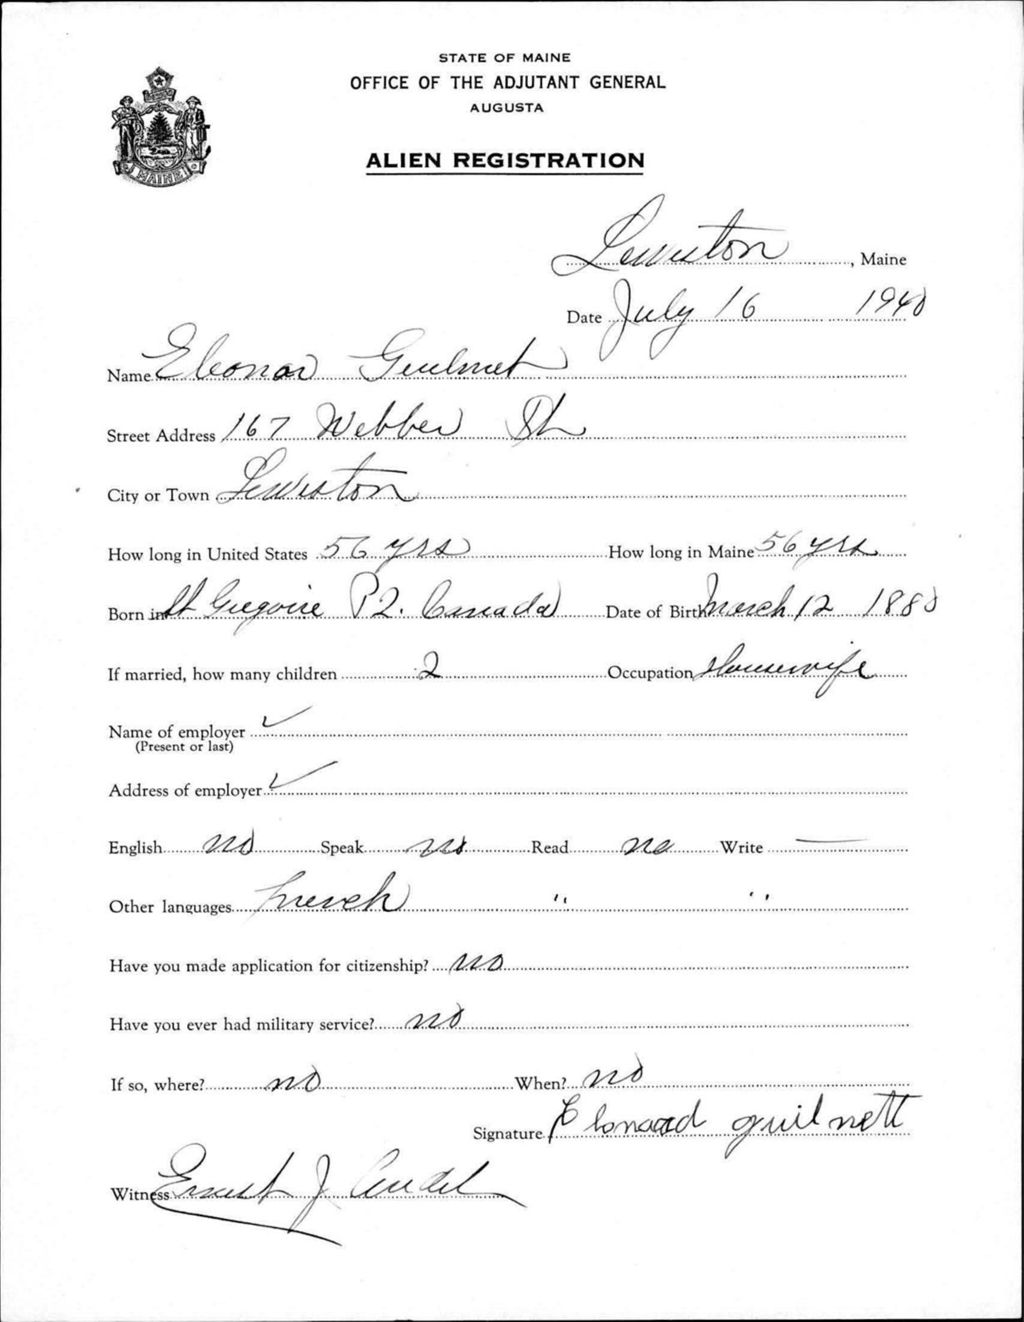 STATE OF MAINE
OFFICE OF THE ADJUTANT GENERAL
AUGUSTA
ALIEN REGISTRATION
MAINE
Lewiston, Maine
Date July 16 1940
Name Eleonor Guilmet
Street Address 167 Webber St
City or Town Lewiston
How long in United States 56 yrs How long in Maine 56 yrs
Born in St Gregoire P2. Canada Date of Birth March 12 1880
If married, how many children 2 Occupation Housewife
Name of employer ✓
(Present or last)
Address of employer ✓
English no Speak no Read no Write —
Other languages french " "
Have you made application for citizenship? no
Have you ever had military service? no
If so, where? no When? no
Signature guilnett
Witness Ernest J.